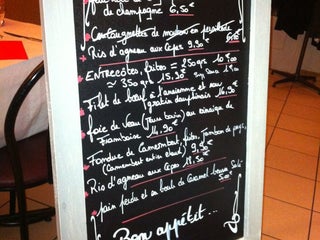 de champagne 6,50€
Contougnettes de mouton en persillade
Ris d'agneau aux Cèpes 9,50€
ENTRECÔTES, frites ≈ 250grs
≈ 350grs 15,90€
Filet de boeuf à l'ancienne et son
gratin dauphinois 14,90€
foie de Veau (Jeune bovin) au vinaigre de
Framboise 14,90€
Fondue de Camembert, frites, Jambon de pays,
(Camembert entier chaud) 9,
Ris d'agneau aux Cèpes 18,50€
pain perdu et sa boule de Caramel beurre Salé
5€
Bon appétit...